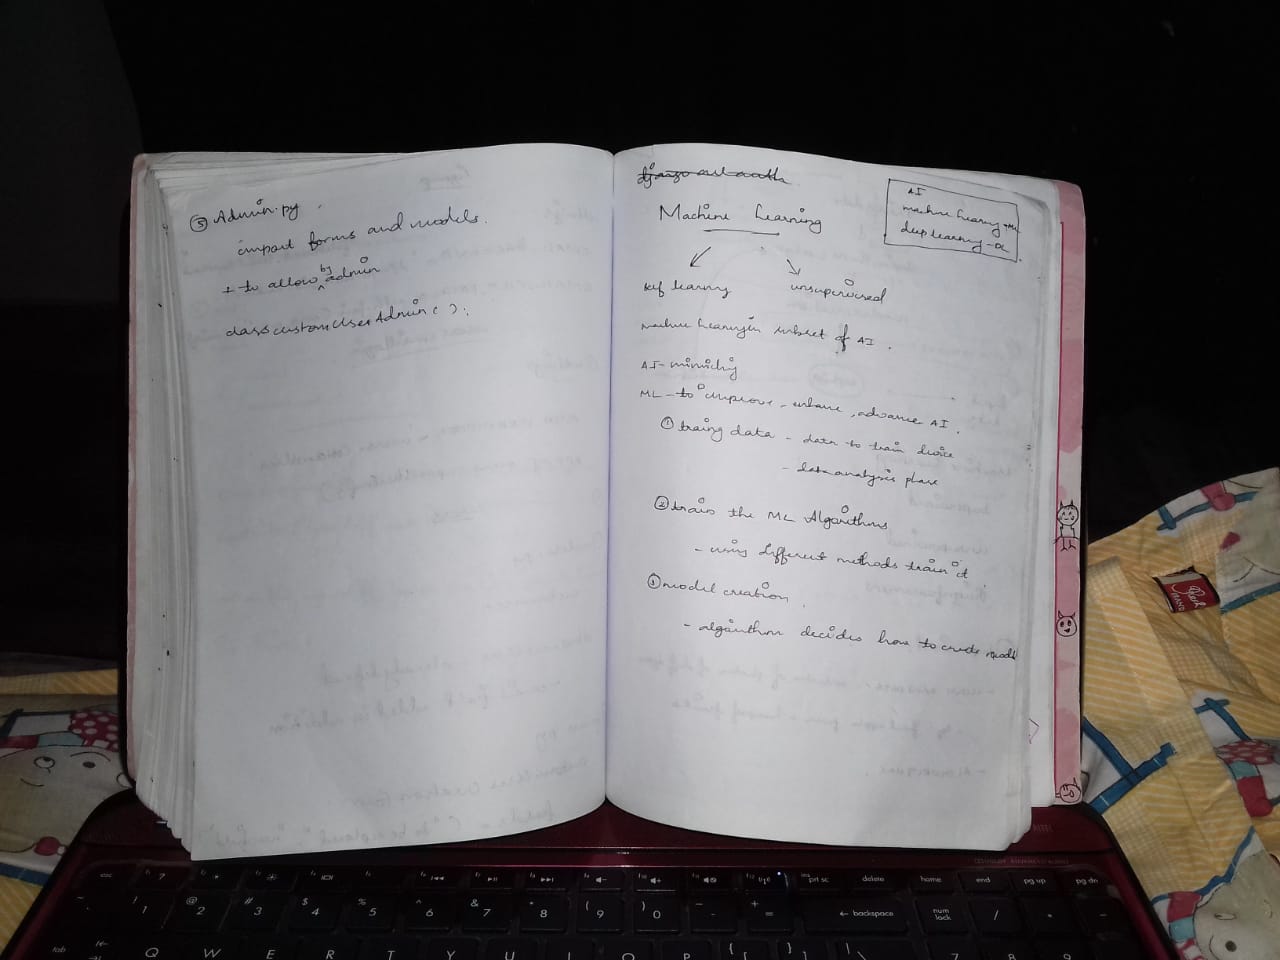 ⑤ Admin.py.
import forms and models.
+ to allow by admin
class customUserAdmin():
django rest auth
Machine Learning
AI
machine learning - ML
deep learning - DL
self learning
unsupervised
machine learning is subset of AI.
AI - mimicing
ML - to improve, enhance, advance AI.
① traing data - data to train device
- data analysis phase
② train the ML Algorithms
- using different methods train it.
③ model creation.
- algorithm decides how to create model
esc
prt sc
delete
home
end
pg up
pg dn
! 1
@ 2
# 3
$ 4
% 5
^ 6
& 7
* 8
( 9
) 0
_ -
+ =
← backspace
num lock
/
*
-
tab
Q W E R T Y U I O P { [ } ] | \
7
8
9